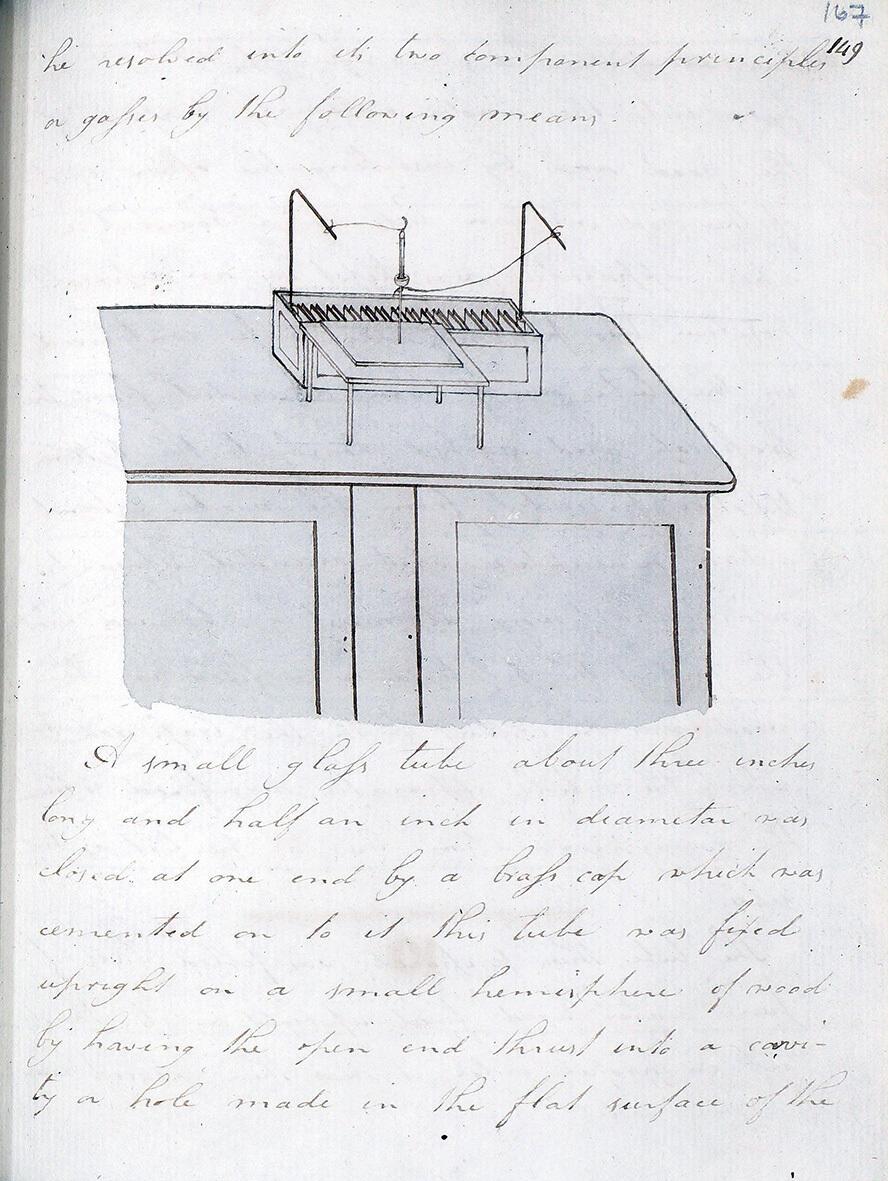 167
149
he resolved into its two component principles
or gasses by the following means.
A small glass tube about three inches
long and half an inch in diameter was
closed at one end by a brass cap which was
cemented on to it this tube was fixed
upright on a small hemisphere of wood
by having the open end thrust into a cavi-
ty or hole made in the flat surface of the